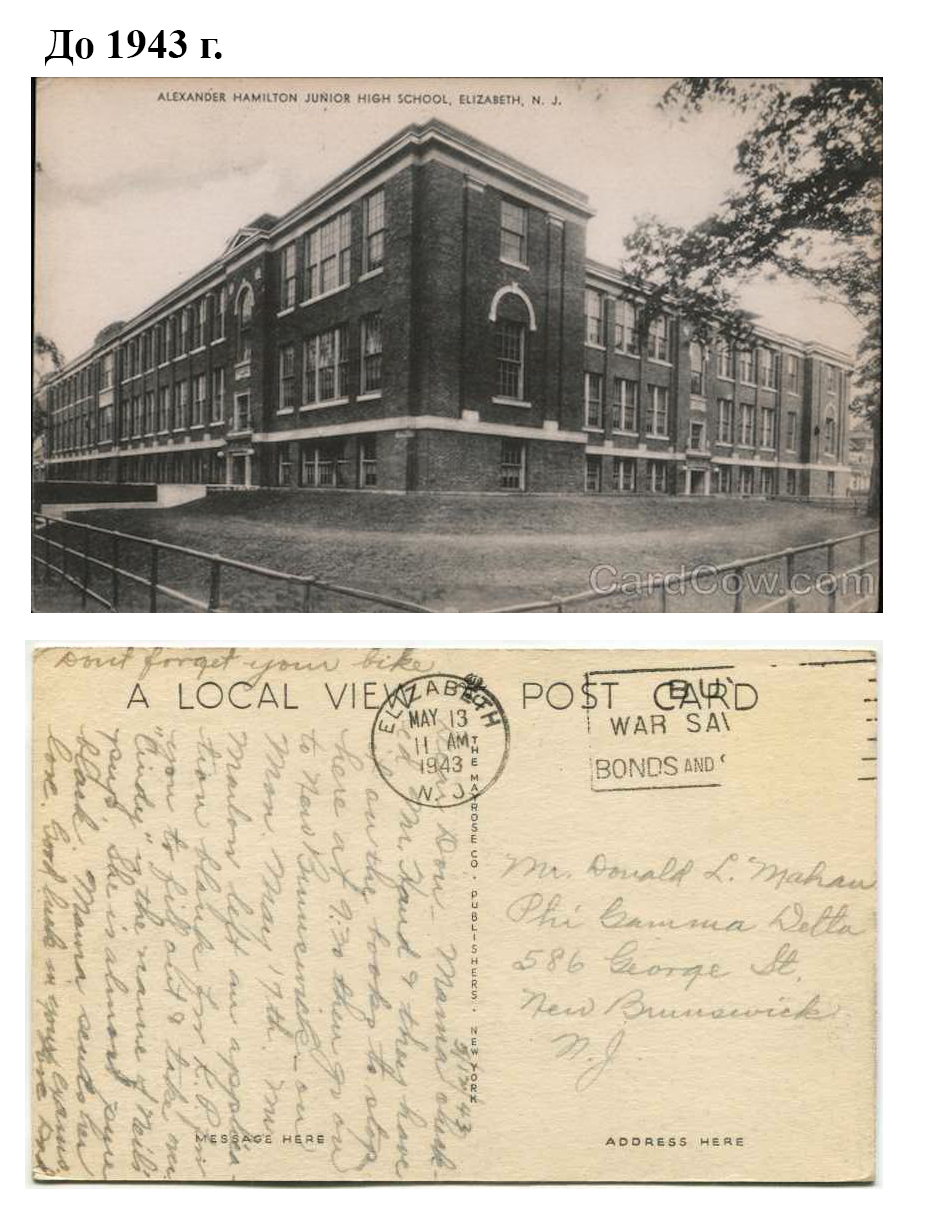 До 1943 г.
ALEXANDER HAMILTON JUNIOR HIGH SCHOOL, ELIZABETH, N. J.
CardCow.com
Dont forget your bike
A LOCAL VIEW
POST CARD
ELIZABETH
MAY 13
11 AM
1943
N. J.
BUY
WAR SAV
BONDS AND
THE MAYROSE CO. PUBLISHERS. NEW YORK
Don - Mama
M. Hand & they have
on the books to stop
here at 9:30 then go on
to New Brunswick - on
Mon. May 17th. Mr
Marlon left an applica-
tion blank for
you to fill out & take
"Cindy" the name of Neil's
pup. She is almost pure
black. Mama sends her
love. Good luck in your exams
Mr. Donald L. Mahan
Phi Gamma Delta
586 George St.
New Brunswick
N.J.
MESSAGE HERE
ADDRESS HERE